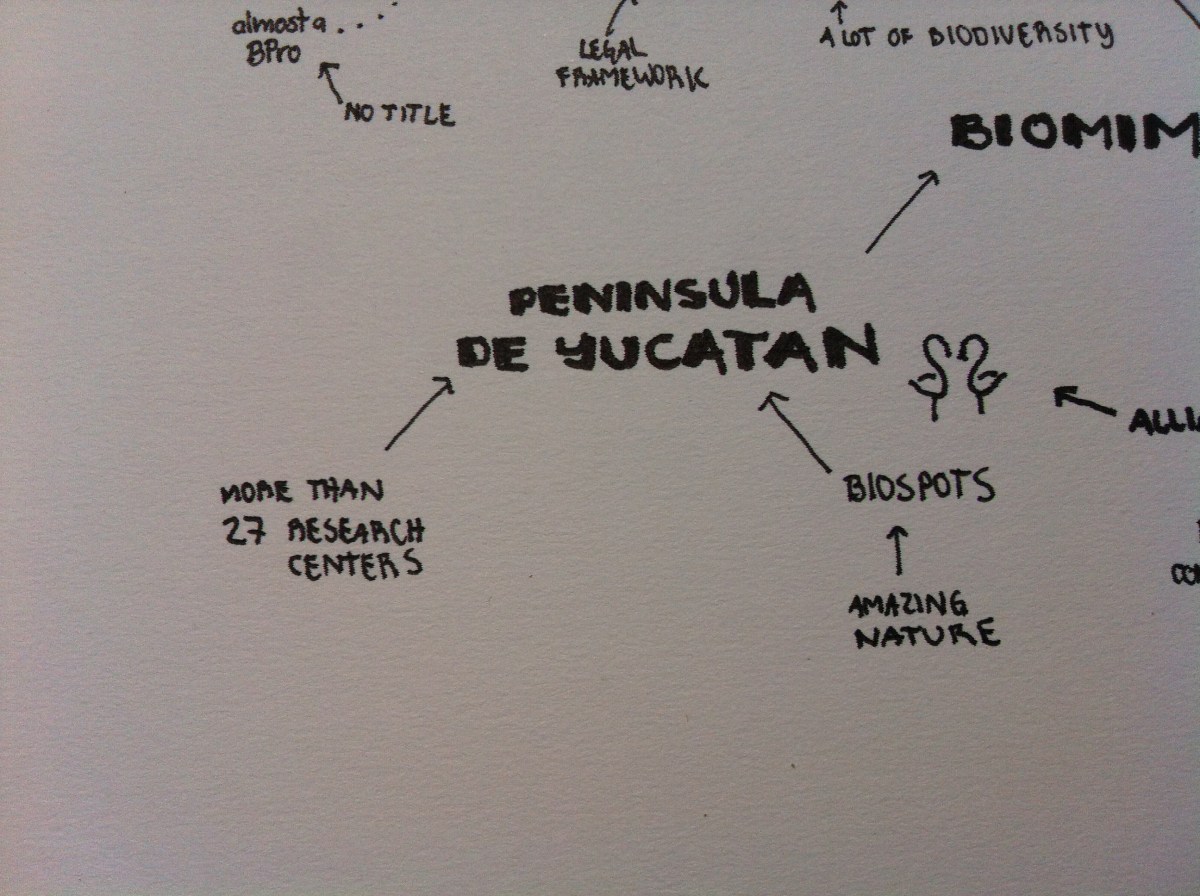 almost a . . . .
BPro
NO TITLE
LEGAL
FRAMEWORK
A LOT OF BIODIVERSITY
BIOMIM
PENINSULA
DE YUCATAN
ALLIA
MORE THAN
27 RESEARCH
CENTERS
BIOSPOTS
AMAZING
NATURE